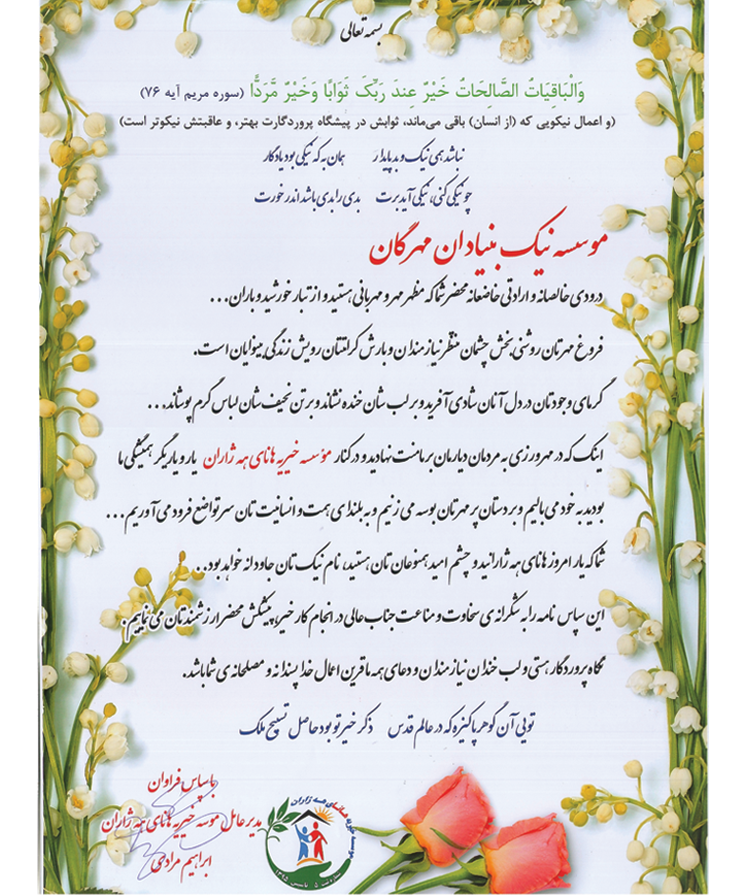 بسمه تعالی
وَالْبَاقِيَاتُ الصَّالِحَاتُ خَيْرٌ عِندَ رَبِّكَ ثَوَابًا وَخَيْرٌ مَّرَدًّا (سوره مریم آیه ۷۶)
(و اعمال نیکویی که (از انسان) باقی می‌ماند، ثوابش در پیشگاه پروردگارت بهتر، و عاقبتش نیکوتر است)
نباشد همی نیک و بد پایدار همان به که نیکی بود یادگار
چو نیکی کنی، نیکی آید برت بدی را بدی باشد اندر خورت
موسسه نیک بنیادان مهرگان
درودی خالصانه و ارادتی خاضعانه محضر شما که مظهر مهر و مهربانی هستید و از تبار خورشید و باران...
فروغ مهرتان روشنی بخش چشمان منتظر نیازمندان و بارش کرامتتان رویش زندگی بینوایان است.
گرمای وجودتان در دل آنان شادی آفرید و بر لب شان خنده نشاند و بر تن نحیف شان لباس گرم پوشاند...
اینک که در مهرورزی به مردمان دیارمان بر ما منت نهادید و در کنار موسسه خیریه هانای هه ژاران یار و یاریگر همیشگی ما
بودید به خود می بالیم و بر دستان پر مهرتان بوسه می زنیم و به بلندای همت و انسانیت تان سر تواضع فرود می آوریم...
شما که یار امروز هانای هه ژارانید و چشم امید همنوعان تان هستید، نام نیک تان جاودانه خواهد بود..
این سپاس نامه را به شکرانه ی سخاوت و مناعت جناب عالی در انجام کار خیر، پیشکش محضر ارزشمندتان می نماییم.
نگاه پروردگار هستی و لب خندان نیازمندان و دعای همه ما قرین اعمال خداپسندانه و مصلحانه ی شما باشد.
تویی آن گوهر پاکیزه که در عالم قدس ذکر خیر تو بود حاصل تسبیح ملک
با سپاس فراوان
مدیر عامل موسسه خیریه هانای هه ژاران
ابراهیم مرادی